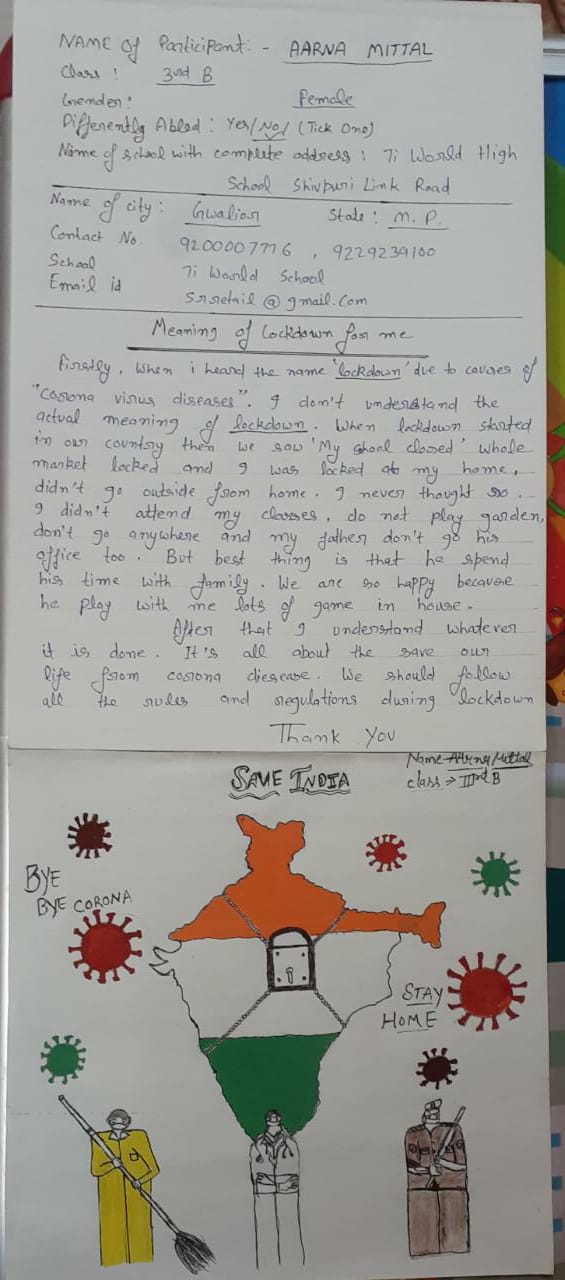 NAME of Participant: - AARNA MITTAL
Class : 3rd B
Gender : Female
Differently Abled : Yes/No/ (Tick One)
Name of school with complete address : 7i World High
School Shivpuri Link Road
Name of city : Gwalior State : M. P.
Contact No. 9200007776 , 9229239100
School 7i World School
Email id Srretail @ gmail.Com
Meaning of Lockdown for me
Firstly, When i heard the name 'lockdown' due to causes of
"Corona virus diseases". I don't understand the
actual meaning of lockdown. When lockdown started
in our country then we saw 'My shool closed' whole
market locked and I was locked at my home,
didn't go outside from home. I never thought so.
I didn't attend my classes, do not play garden,
don't go anywhere and my father don't go his
office too. But best thing is that he spend
his time with family. We are so happy because
he play with me lots of game in house.
After that I understand whatever
it is done. It's all about the save our
life from corona diesease. We should follow
all the rules and regulations during lockdown
Thank You
Name Aarna Mittal
SAVE INDIA
class → IIIrd B
BYE
BYE CORONA
STAY
HOME